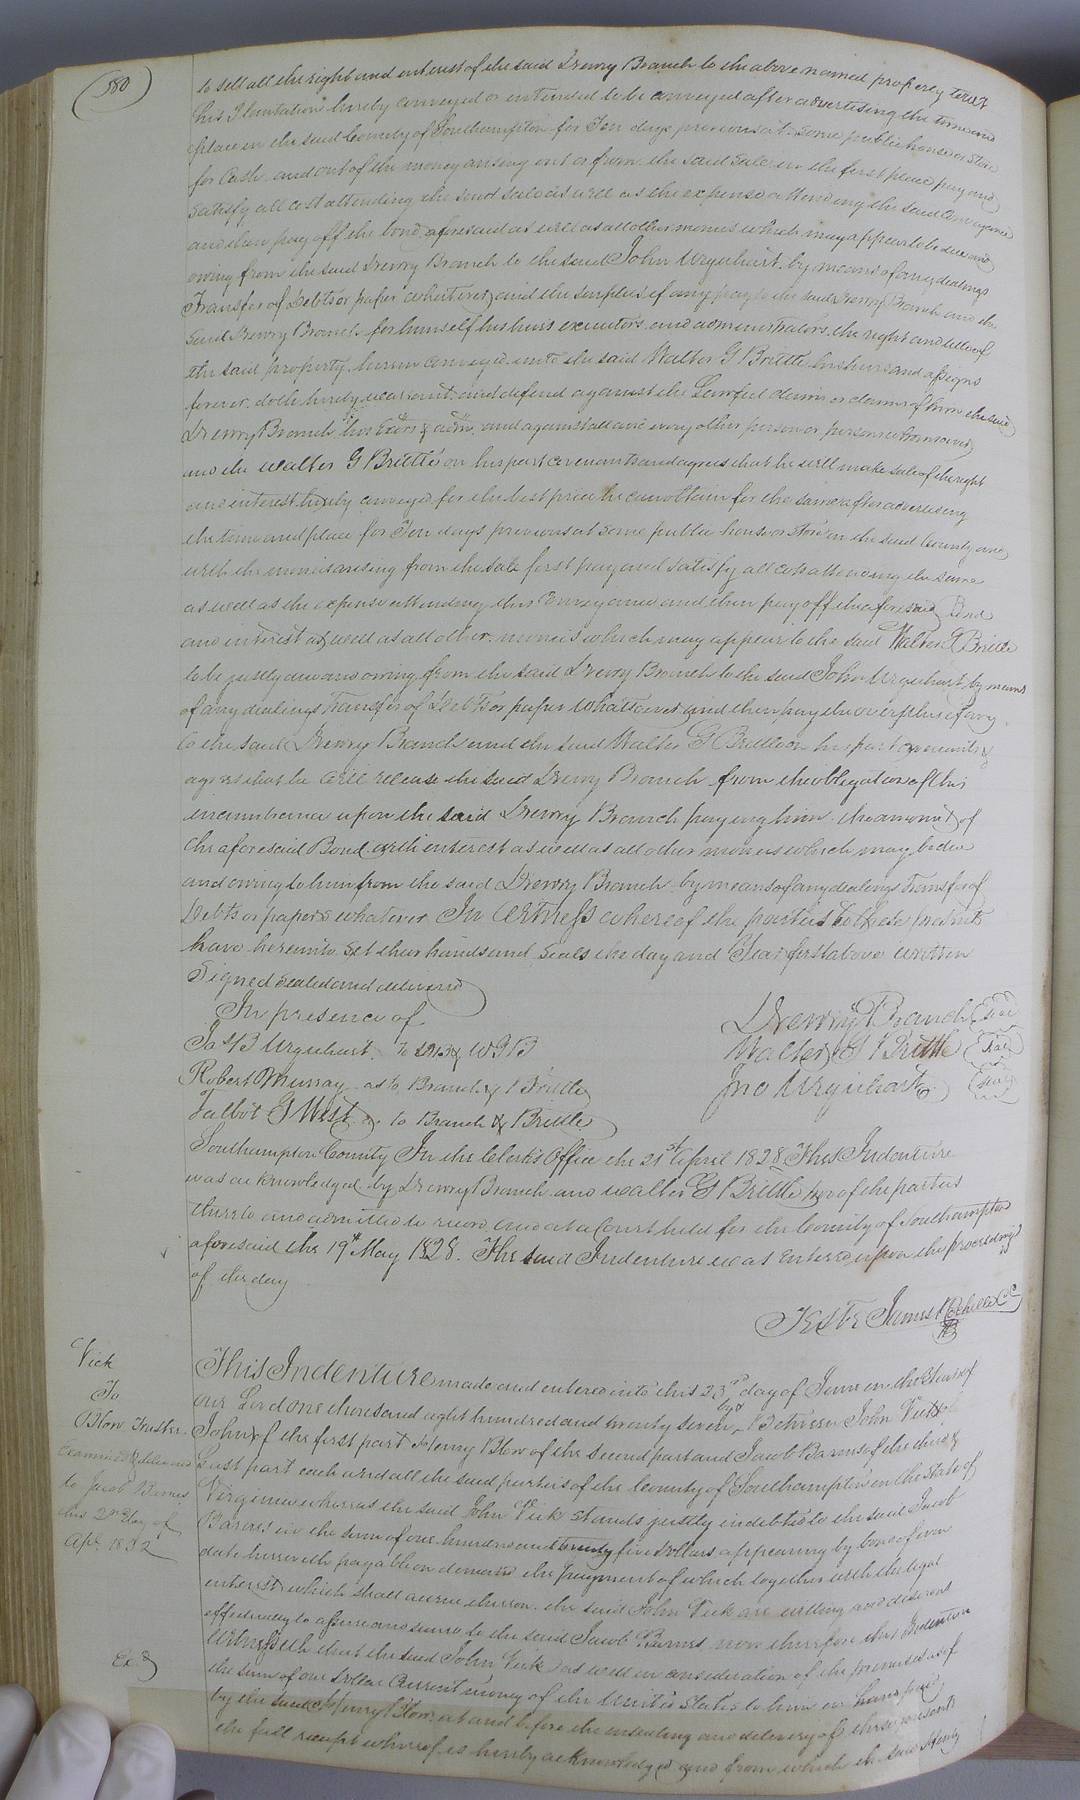 580
to sell all the right and interest of the said Drewry Branch to the above named property to wit
his Plantation hereby conveyed or intended to be conveyed after advertising the time and
place in the said County of Southampton for Ten days previous at some public house or store
for Cash and out of the money arising out or from the said sale in the first place pay and
satisfy all cost attending the said sale as well as the expense attending the said conveyance
and then pay off the bond aforesaid as well as all other monies which may appear to be due and
owing from the said Drewry Branch to the said John Urquhart by means of any dealings
Transfer of Debts or paper whatever, and the surplus if any pay to the said Drewry Branch and the
said Drewry Branch for himself his heirs executors and administrators the right and title of
the said property herein conveyed unto the said Walter G Brittle his heirs and assigns
forever doth hereby warrant and defend against the Lawful claim or claims of him the said
Drewry Branch his Exors & adm. and against all and every other person or persons whomsoever
and the Walter G Brittle on his part covenants and agrees that he will make sale of the right
and interest hereby conveyed for the best price he can obtain for the same after advertising
the time and place for Ten days previous at some public house or store in the said County and
with the monies arising from the sale first pay and satisfy all costs attending the same
as well as the expense attending this Conveyance and then pay off the aforesaid Bond
and interest as well as all other monies which may appear to the said Walter G Brittle
to be justly due and owing from the said Drewry Branch to the said John Urquhart by means
of any dealings Transfer of Debts or paper whatsoever and then pay the overplus if any
to the said Drewry Branch and the said Walter G Brittle on his part covenants &
agrees that he will release the said Drewry Branch from the obligation of this
incumbrance upon the said Drewry Branch paying him the amount of
the aforesaid Bond with interest as well as all other monies which may be due
and owing to him from the said Drewry Branch by means of any dealings Transfer of
Debts or papers whatever In Witness whereof the parties to these presents
have hereunto set their hands and seals the day and Year first above written
Signed sealed and delivered
In presence of
Drewry Branch Seal
Jas B Urquhart. to DB & WGB
Walter G Brittle Seal
Robert Murray as to Branch & Brittle
Jno Urquhart Seal
Talbot G West as to Branch & Brittle
Southampton County In the Clerks Office the 21st April 1828 This Indenture
was acknowledged by Drewry Branch and Walter G Brittle two of the parties
thereto and admitted to record, and at a Court held for the County of Southampton
aforesaid the 19th May 1828. The said Indenture was entered upon the proceedings
of the day
Teste James Rochelle CC
Vick
To
Blow Trustee
Examined & delivered
to Jacob Barnes
this 2nd day of
Apl 1832
Exd
This Indenture made and entered into this 23rd day of June in the Year of
our Lord one thousand eight hundred and twenty seven Between John Vick of
John of the first part Henry Blow of the second part and Jacob Barnes of the third &
Last part each and all the said parties of the County of Southampton in the State of
Virginia whereas the said John Vick stands justly indebted to the said Jacob
Barnes in the sum of one hundred and twenty five dollars appearing by bond of even
date herewith payable on demand the payment of which together with the legal
interest which shall accrue thereon the said John Vick are willing and desirous
effectually to assure and secure to the said Jacob Barnes now therefore this Indenture
Witnesseth that the said John Vick as well in consideration of the premises as of
the sum of one dollar Current money of the United States to him in hand paid
by the said Henry Blow at and before the ensealing and delivery of these presents
the full receipt whereof is hereby acknowledged and from which the said Henry